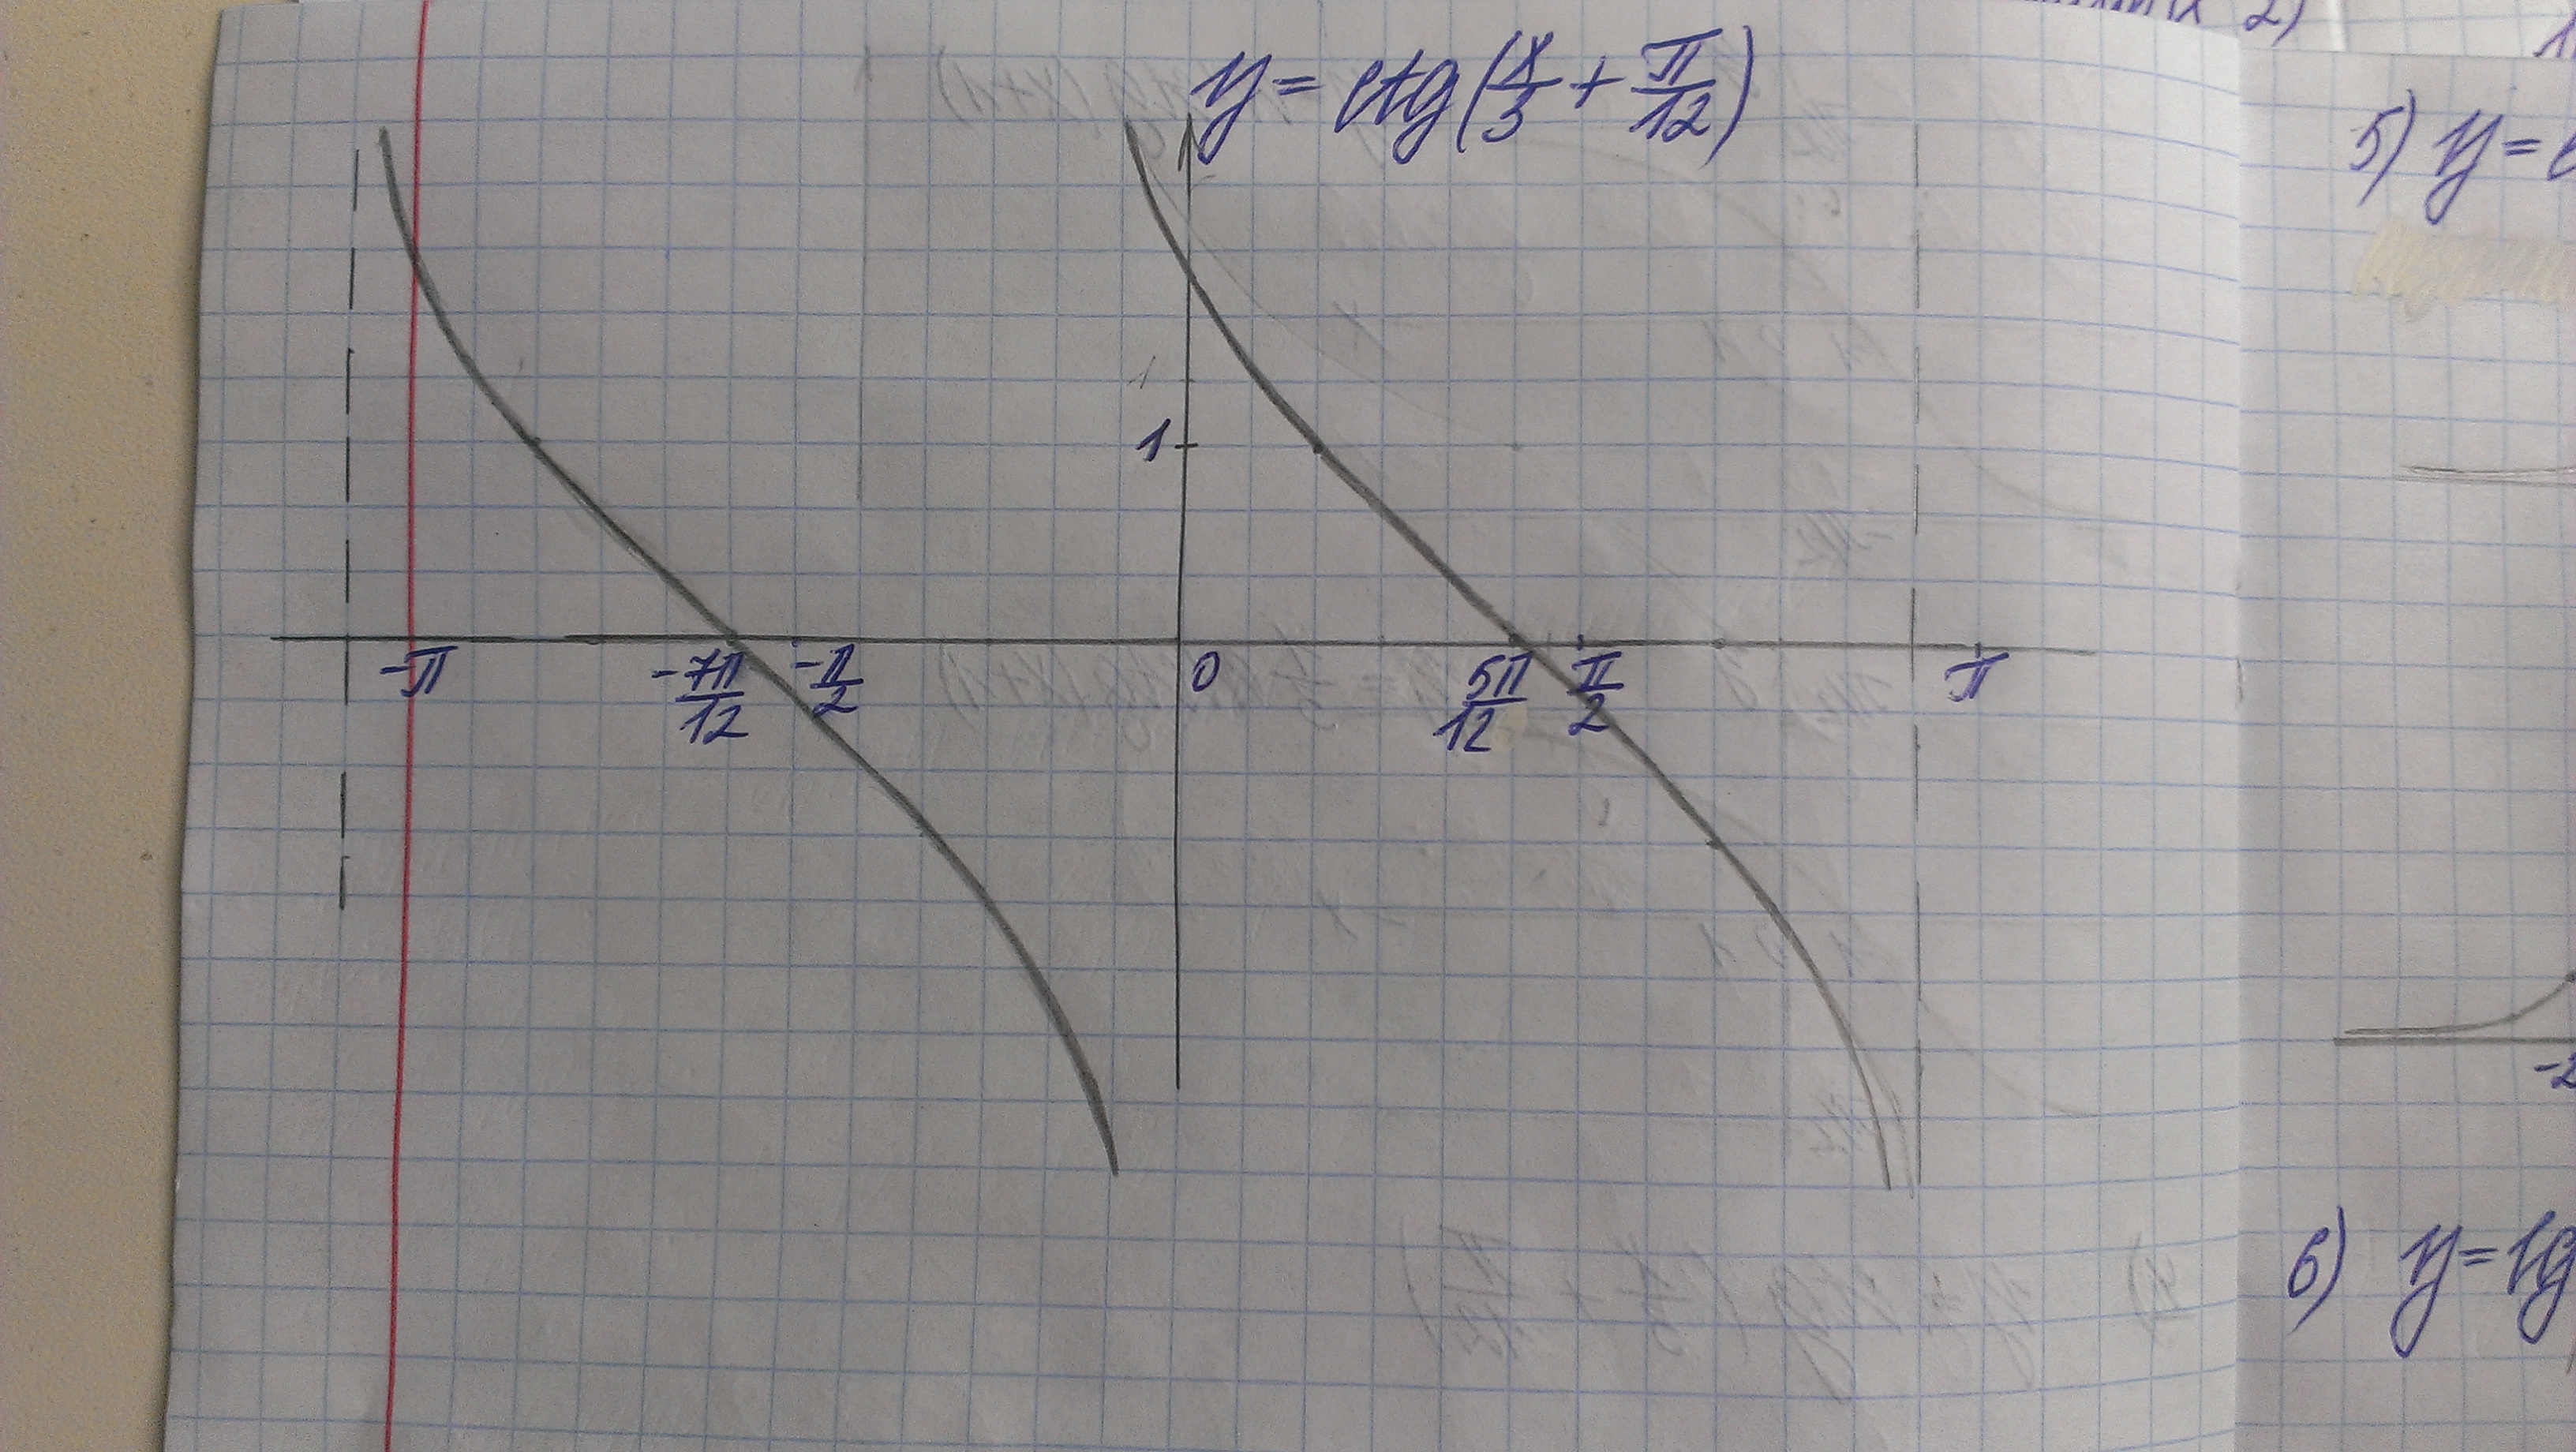 y = ctg(x/3 + π/12)
5) y =
1
-π -7π/12 -π/2 0 5π/12 π/2 π
-2
6) y = tg